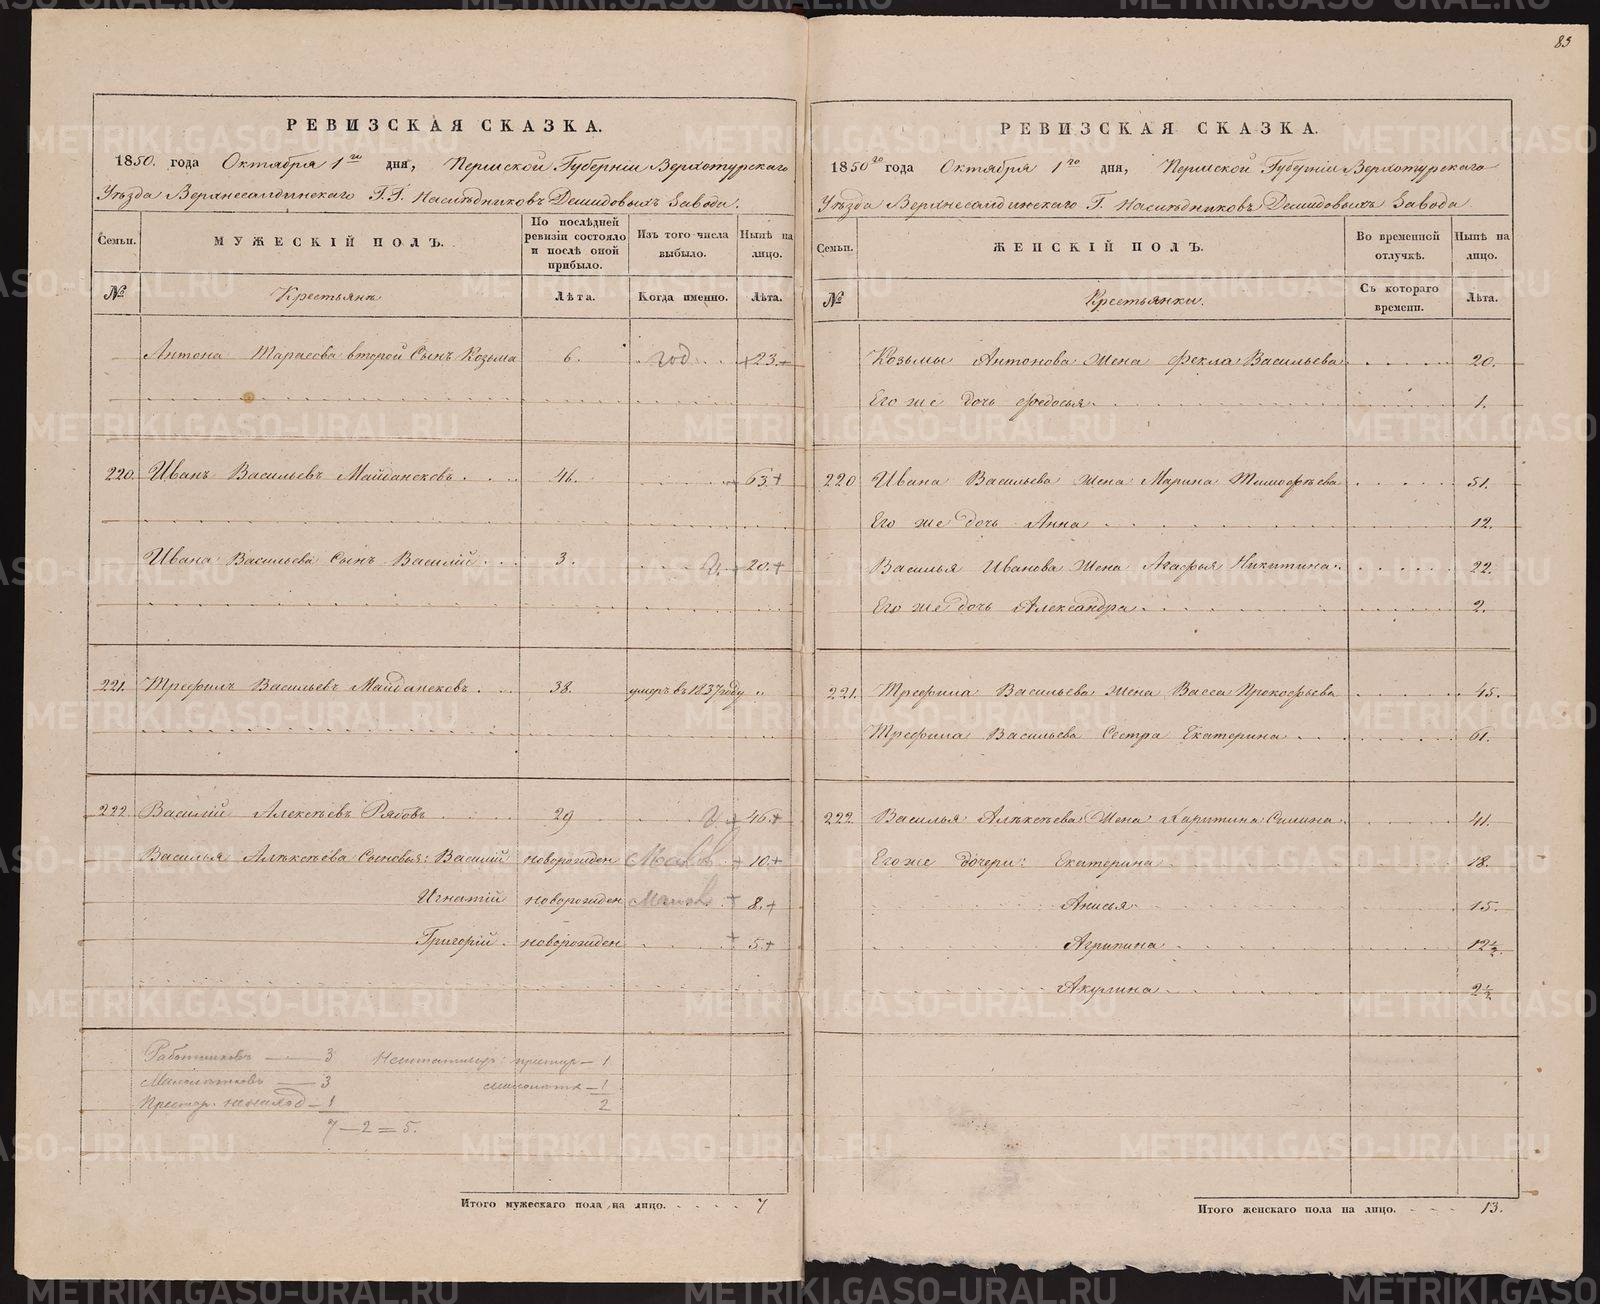 83
РЕВИЗСКАЯ СКАЗКА.
1850. года Октября 1го дня, Пермской Губерніи Верхотурскаго
Уѣзда Верхнесалдинскаго Г.Г. Наслѣдниковъ Демидовыхъ Завода.
Семьи.
МУЖЕСКІЙ ПОЛЪ.
По послѣдней ревизіи состояло и послѣ оной прибыло.
Изъ того числа выбыло.
Нынѣ на лицо.
№
Крестьянъ
Лѣта.
Когда именно.
Лѣта.
Антона Тарасова второй Сынъ Козьма 6. год +23+
220. Иванъ Васильевъ Майдансковъ. 46. 63+
Ивана Васильева Сынъ Василій 3. 20.+
221. Трефилъ Васильевъ Майдансковъ. 38. умеръ въ 1837 году „
222 Василій Алексѣевъ Рябовъ 29 46+
Василья Алексѣева Сыновья: Василій новорожден +10+
Игнатій новорожден + 8.+
Григорій. новорожден + 5.+
Работниковъ — 3 престар — 1
Малолѣтковъ — 3 малолѣтк — 1
Престар. — 1 2
7 — 2 = 5.
Итого мужескаго пола на лицо. 7
РЕВИЗСКАЯ СКАЗКА.
1850го года Октября 1го дня, Пермской Губерніи Верхотурскаго
Уѣзда Верхнесалдинскаго Г. Наслѣдниковъ Демидовыхъ Завода.
Семьи.
ЖЕНСКІЙ ПОЛЪ.
Во временной отлучкѣ.
Нынѣ на лицо.
№
Крестьянки.
Съ котораго времени.
Лѣта.
Козьмы Антонова жена Фекла Васильева 20.
Его же дочь Федосья 1.
220 Ивана Васильева жена Марина Тимофѣева 51.
Его же дочь Анна 12.
Василья Иванова жена Агафья Никитина 22.
Его же дочь Александра 2.
221. Трефила Васильева жена Васса Прокофьева 45.
Трефила Васильева Сестра Екатерина 61.
222 Василья Алексѣева жена Харитина Силина 41.
Его же дочери: Екатерина 18.
Анисья 15.
Агрипина 12½.
Акулина 2½.
Итого женскаго пола на лицо. 13.
METRIKI.GASO-URAL.RU